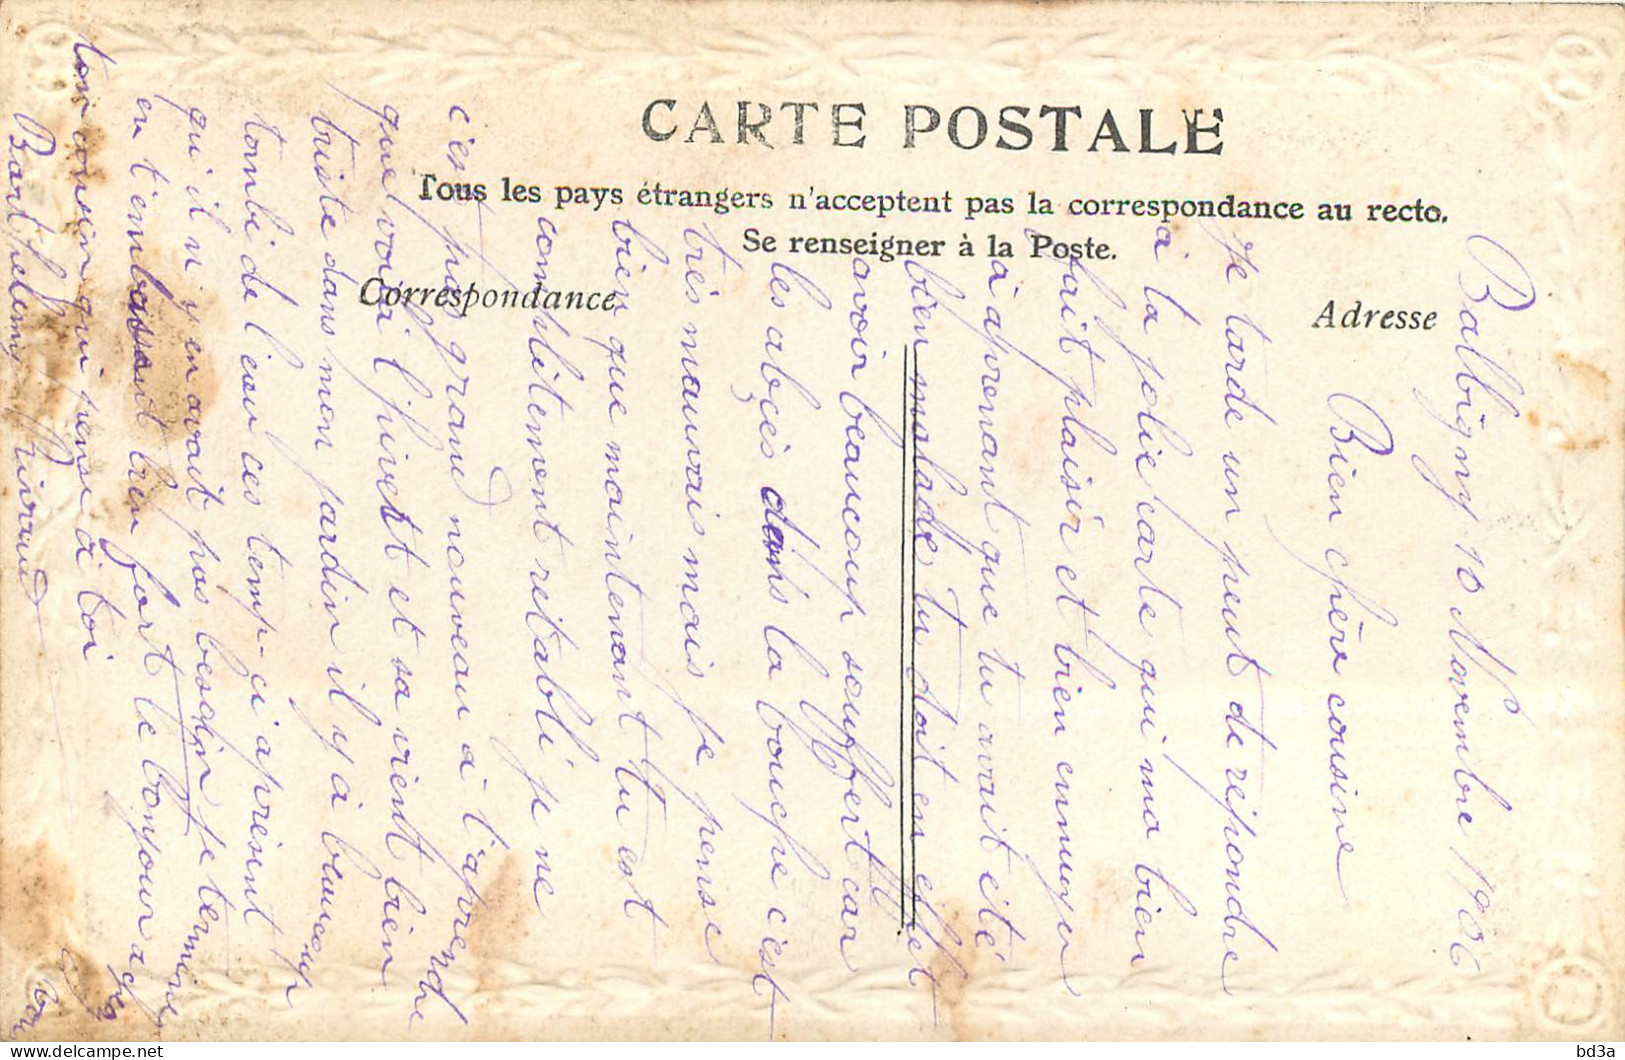 CARTE POSTALE
Tous les pays étrangers n'acceptent pas la correspondance au recto.
Se renseigner à la Poste.
Correspondance
Adresse
Balbigny 10 Novembre 1906
Bien chère cousine
Je tarde un peut de répondre
à la jolie carte qui ma bien
fait plaisir et bien ennuyer
à aprenant que tu avait été
bien malade tu doit en effet
avoir beaucoup souffert car
les abçès dans la bouche c'est
très mauvais mais je pense
bien que maintenant tu est
complitement rétabli je ne
c'est pas grand nouveau à t'aprendre
que voici l'hivert et sa vient bien
triste dans mon jardin il y à beaucoup
tombé de l'eau ces temp-çi aprésent
qu'il n'y en avait pas besoin je termine
en t'embassant bien fort le bonjour a
ton cousin qui pense à toi
Barthelemy Giraud
bd3a